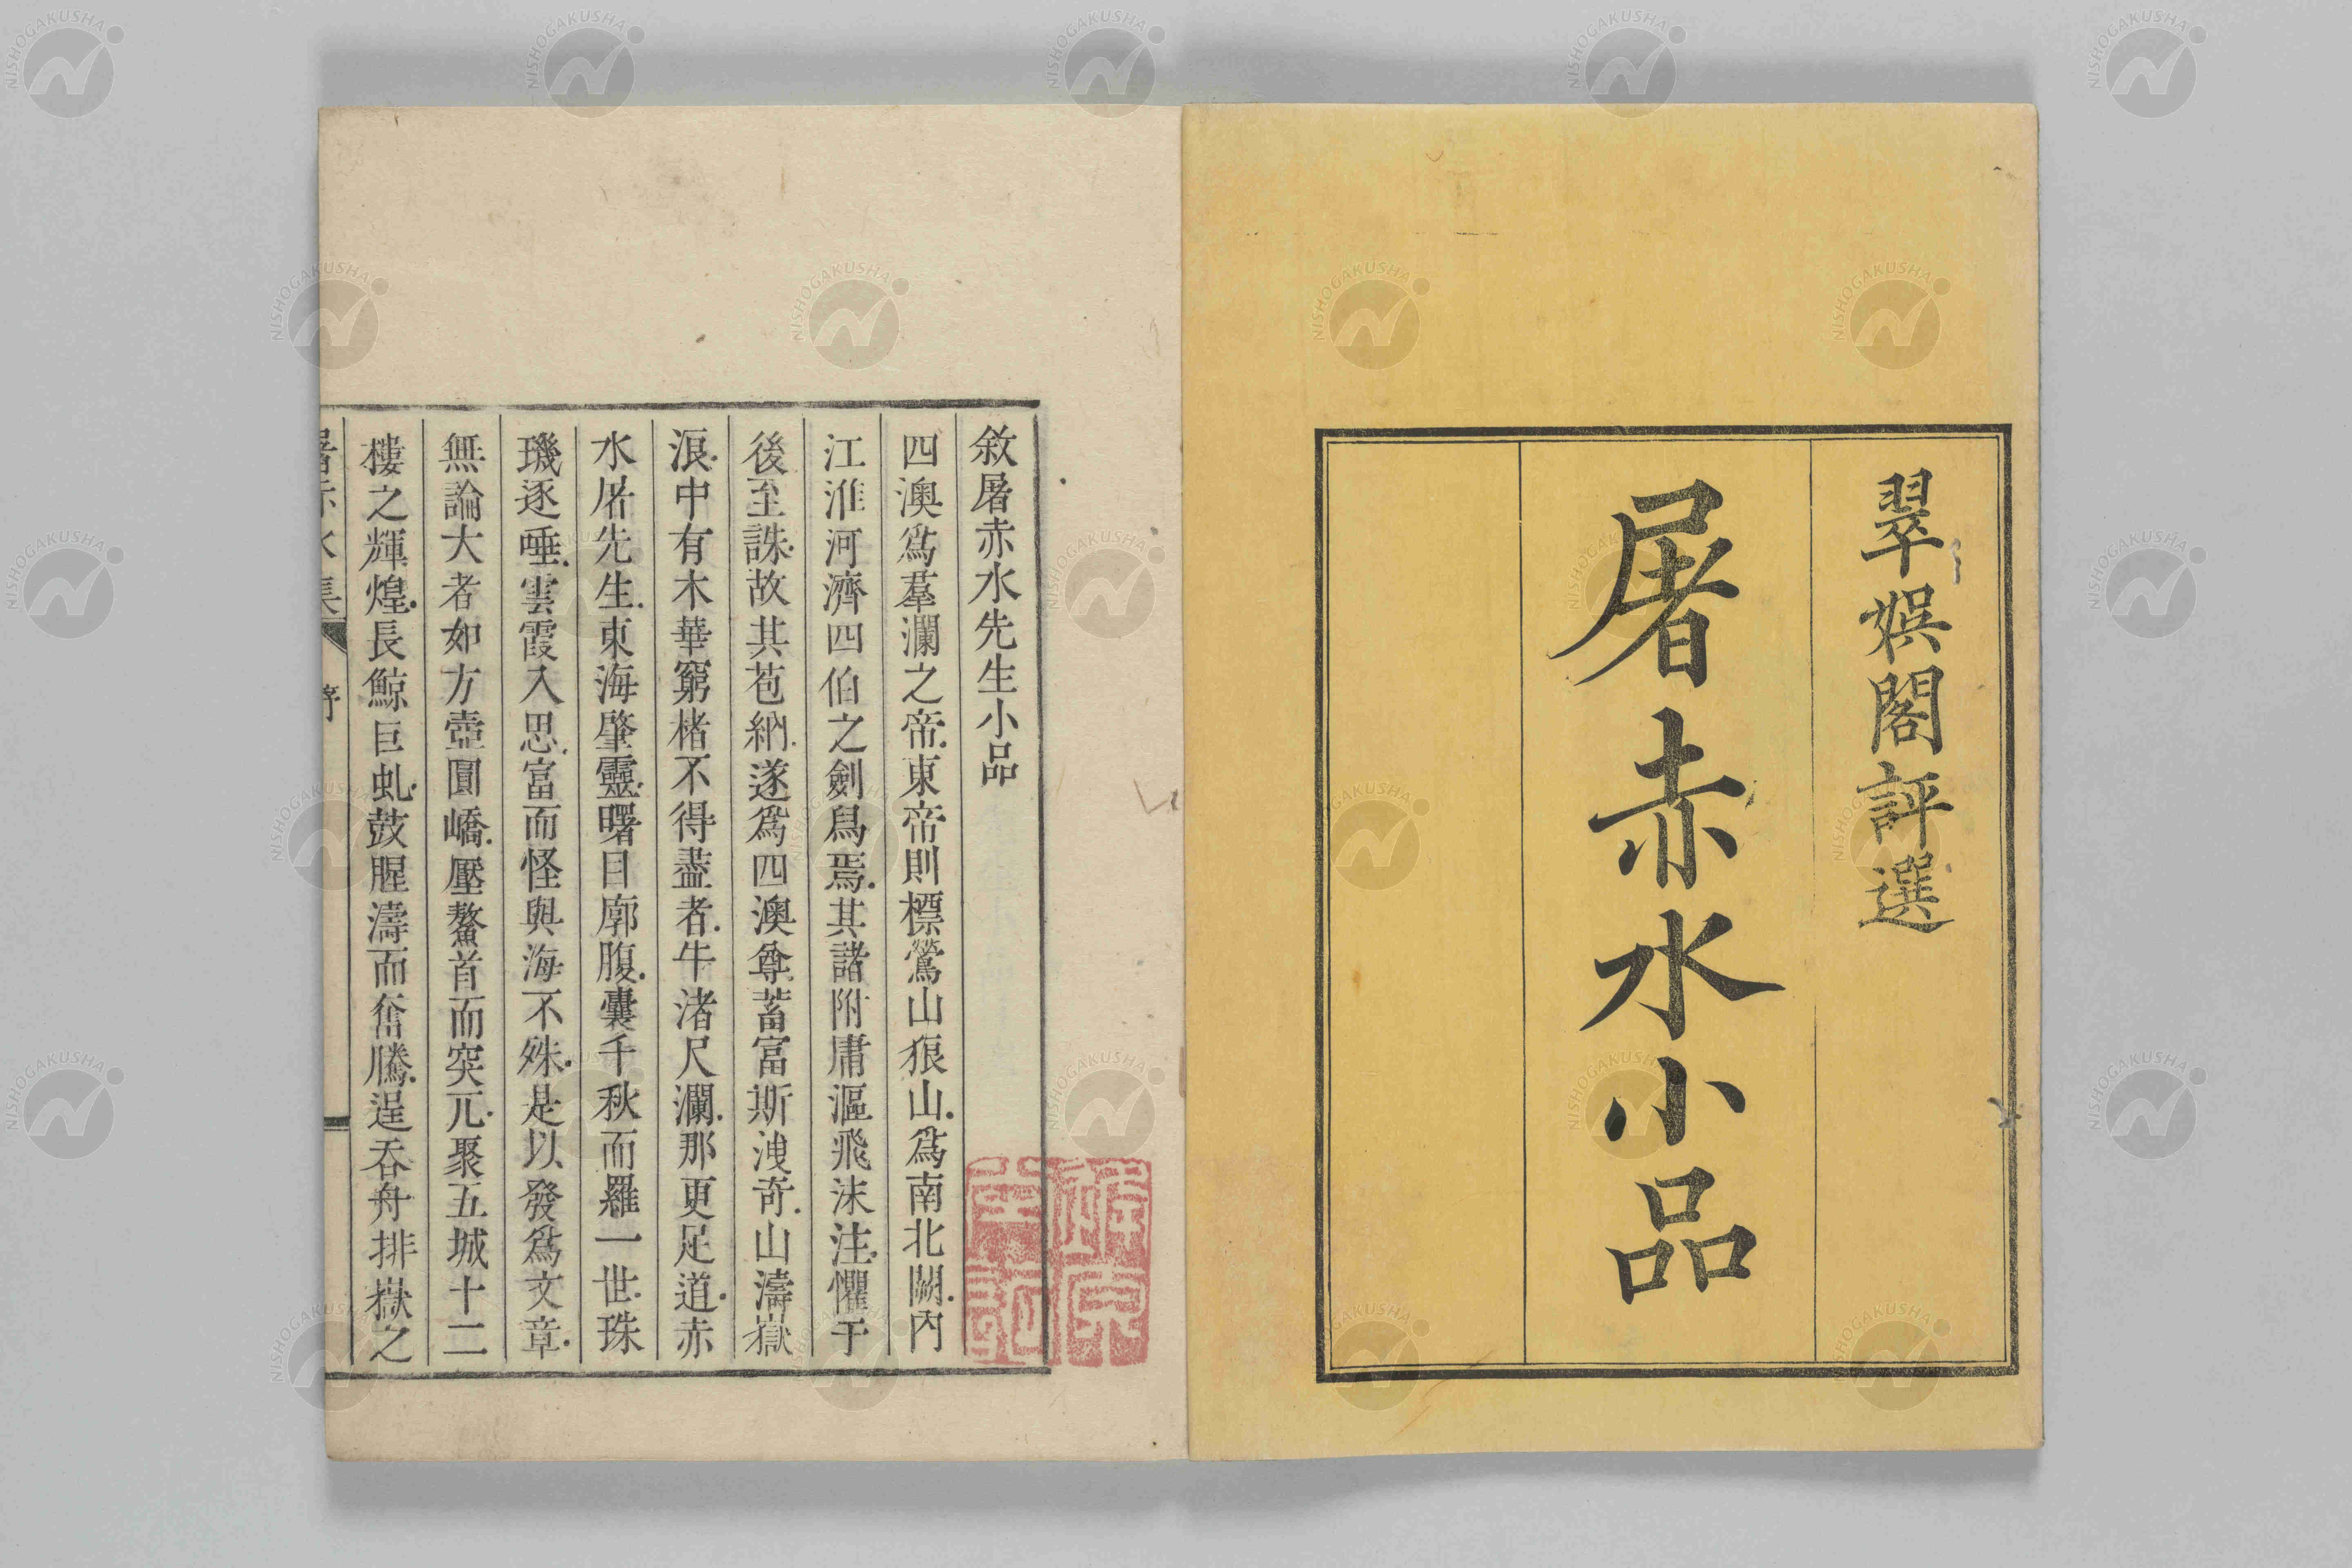 翠娯閣評選
屠赤水小品
敘屠赤水先生小品
四澳爲羣瀾之帝東帝則標鶯山狼山爲南北闕內
江淮河濟四伯之劍舄焉其諸附庸漚飛沫注懼于
後至誅故其苞納遂爲四澳尊蓄富斯洩奇山濤嶽
浪中有木華窮楮不得盡者牛渚尺瀾那更足道赤
水屠先生東海肇靈曙目廓腹囊千秋而羅一世珠
璣逐唾雲霞入思富而怪與海不殊是以發爲文章
無論大者如方壺圓嶠壓鰲首而突兀聚五城十二
樓之輝煌長鯨巨虬鼓腥濤而奮騰逞吞舟排嶽之
屠赤水集 序
NISHOGAKUSHA